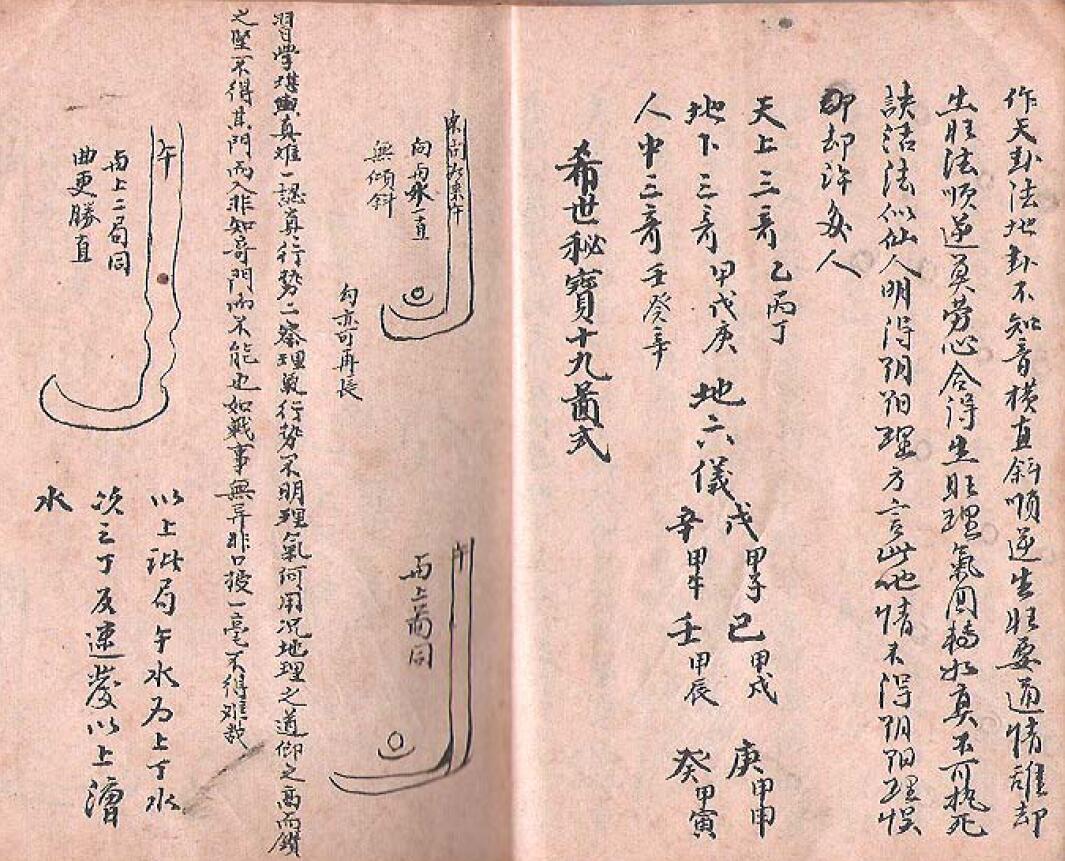 作天卦法地卦不知音橫直斜順逆生旺要通情誰却
生旺法順逆莫勞心合得生旺理氣同轉水真不可執死
訣活法似仙人明得阴阳理方言此地情未得阴阳理悞
却却許多人
天上三奇乙丙丁
地下三奇甲戊庚
人中三奇壬癸辛
地六儀
戊甲子己甲戌庚甲申
辛甲午壬甲辰癸甲寅
希世秘寶十九啚式
向丙水一直
無傾斜
勾亦可再長
午
丙上啚同
習学堪輿真难一認真行勢二察理氣行勢不明理氣何用况地理之道仰之高而鑽
之堅不得其門而入非知奇門而不能也如戰事無弄非口授一毫不得难哉
午
丙上二局同
曲更勝直
以上玭局午水为上丁水
次之丁反速發以上濳
水